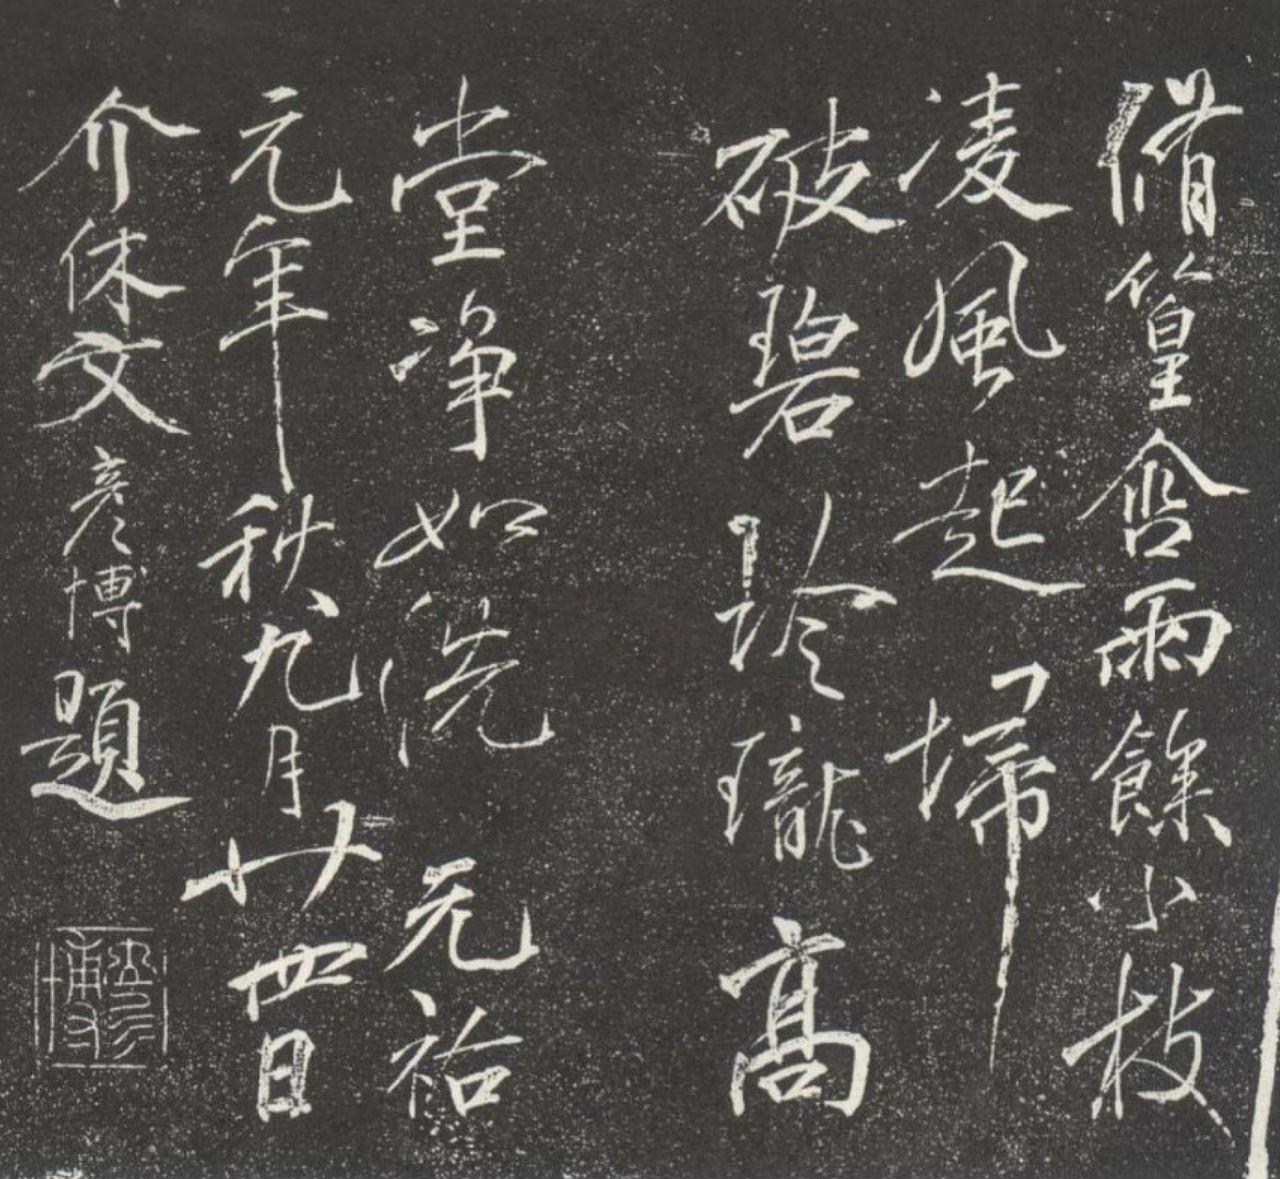 脩篁含雨餘小枝
凌風起埽
破碧玲瓏高
堂淨如洗 元祐
元年秋九月廿四日
介休文彥博題
彥博